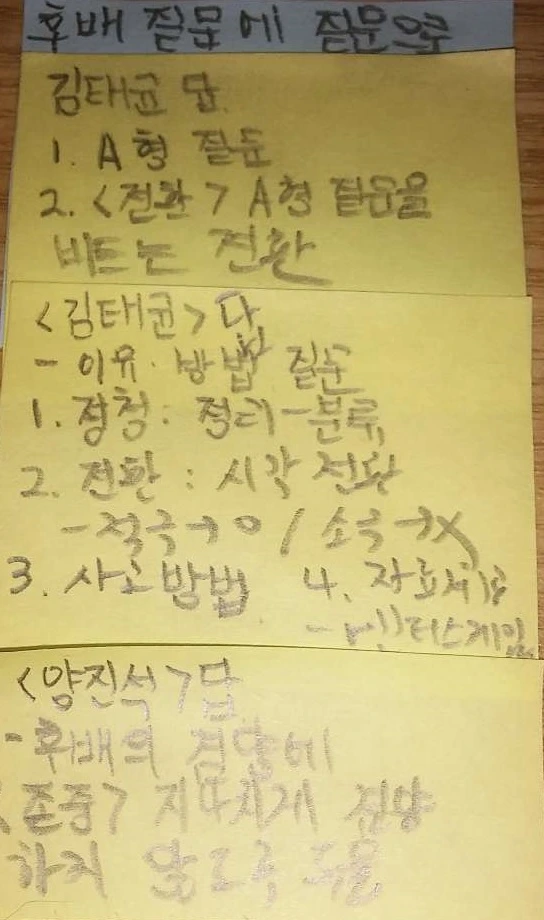 후배 질문에 질문으로
김태균 답
1. A형 질문
2. <전환> A형 질문을
비트는 전환
<김태균> 답
- 이유·방법 질문
1. 경청: 정리-분류
2. 전환 : 시각 전환
- 적극→O / 소극→X
3. 사고방법 4. 자료제공
<양진석>답
- 후배의 질문에
<존중> 지나치게
하지 않도록 도움